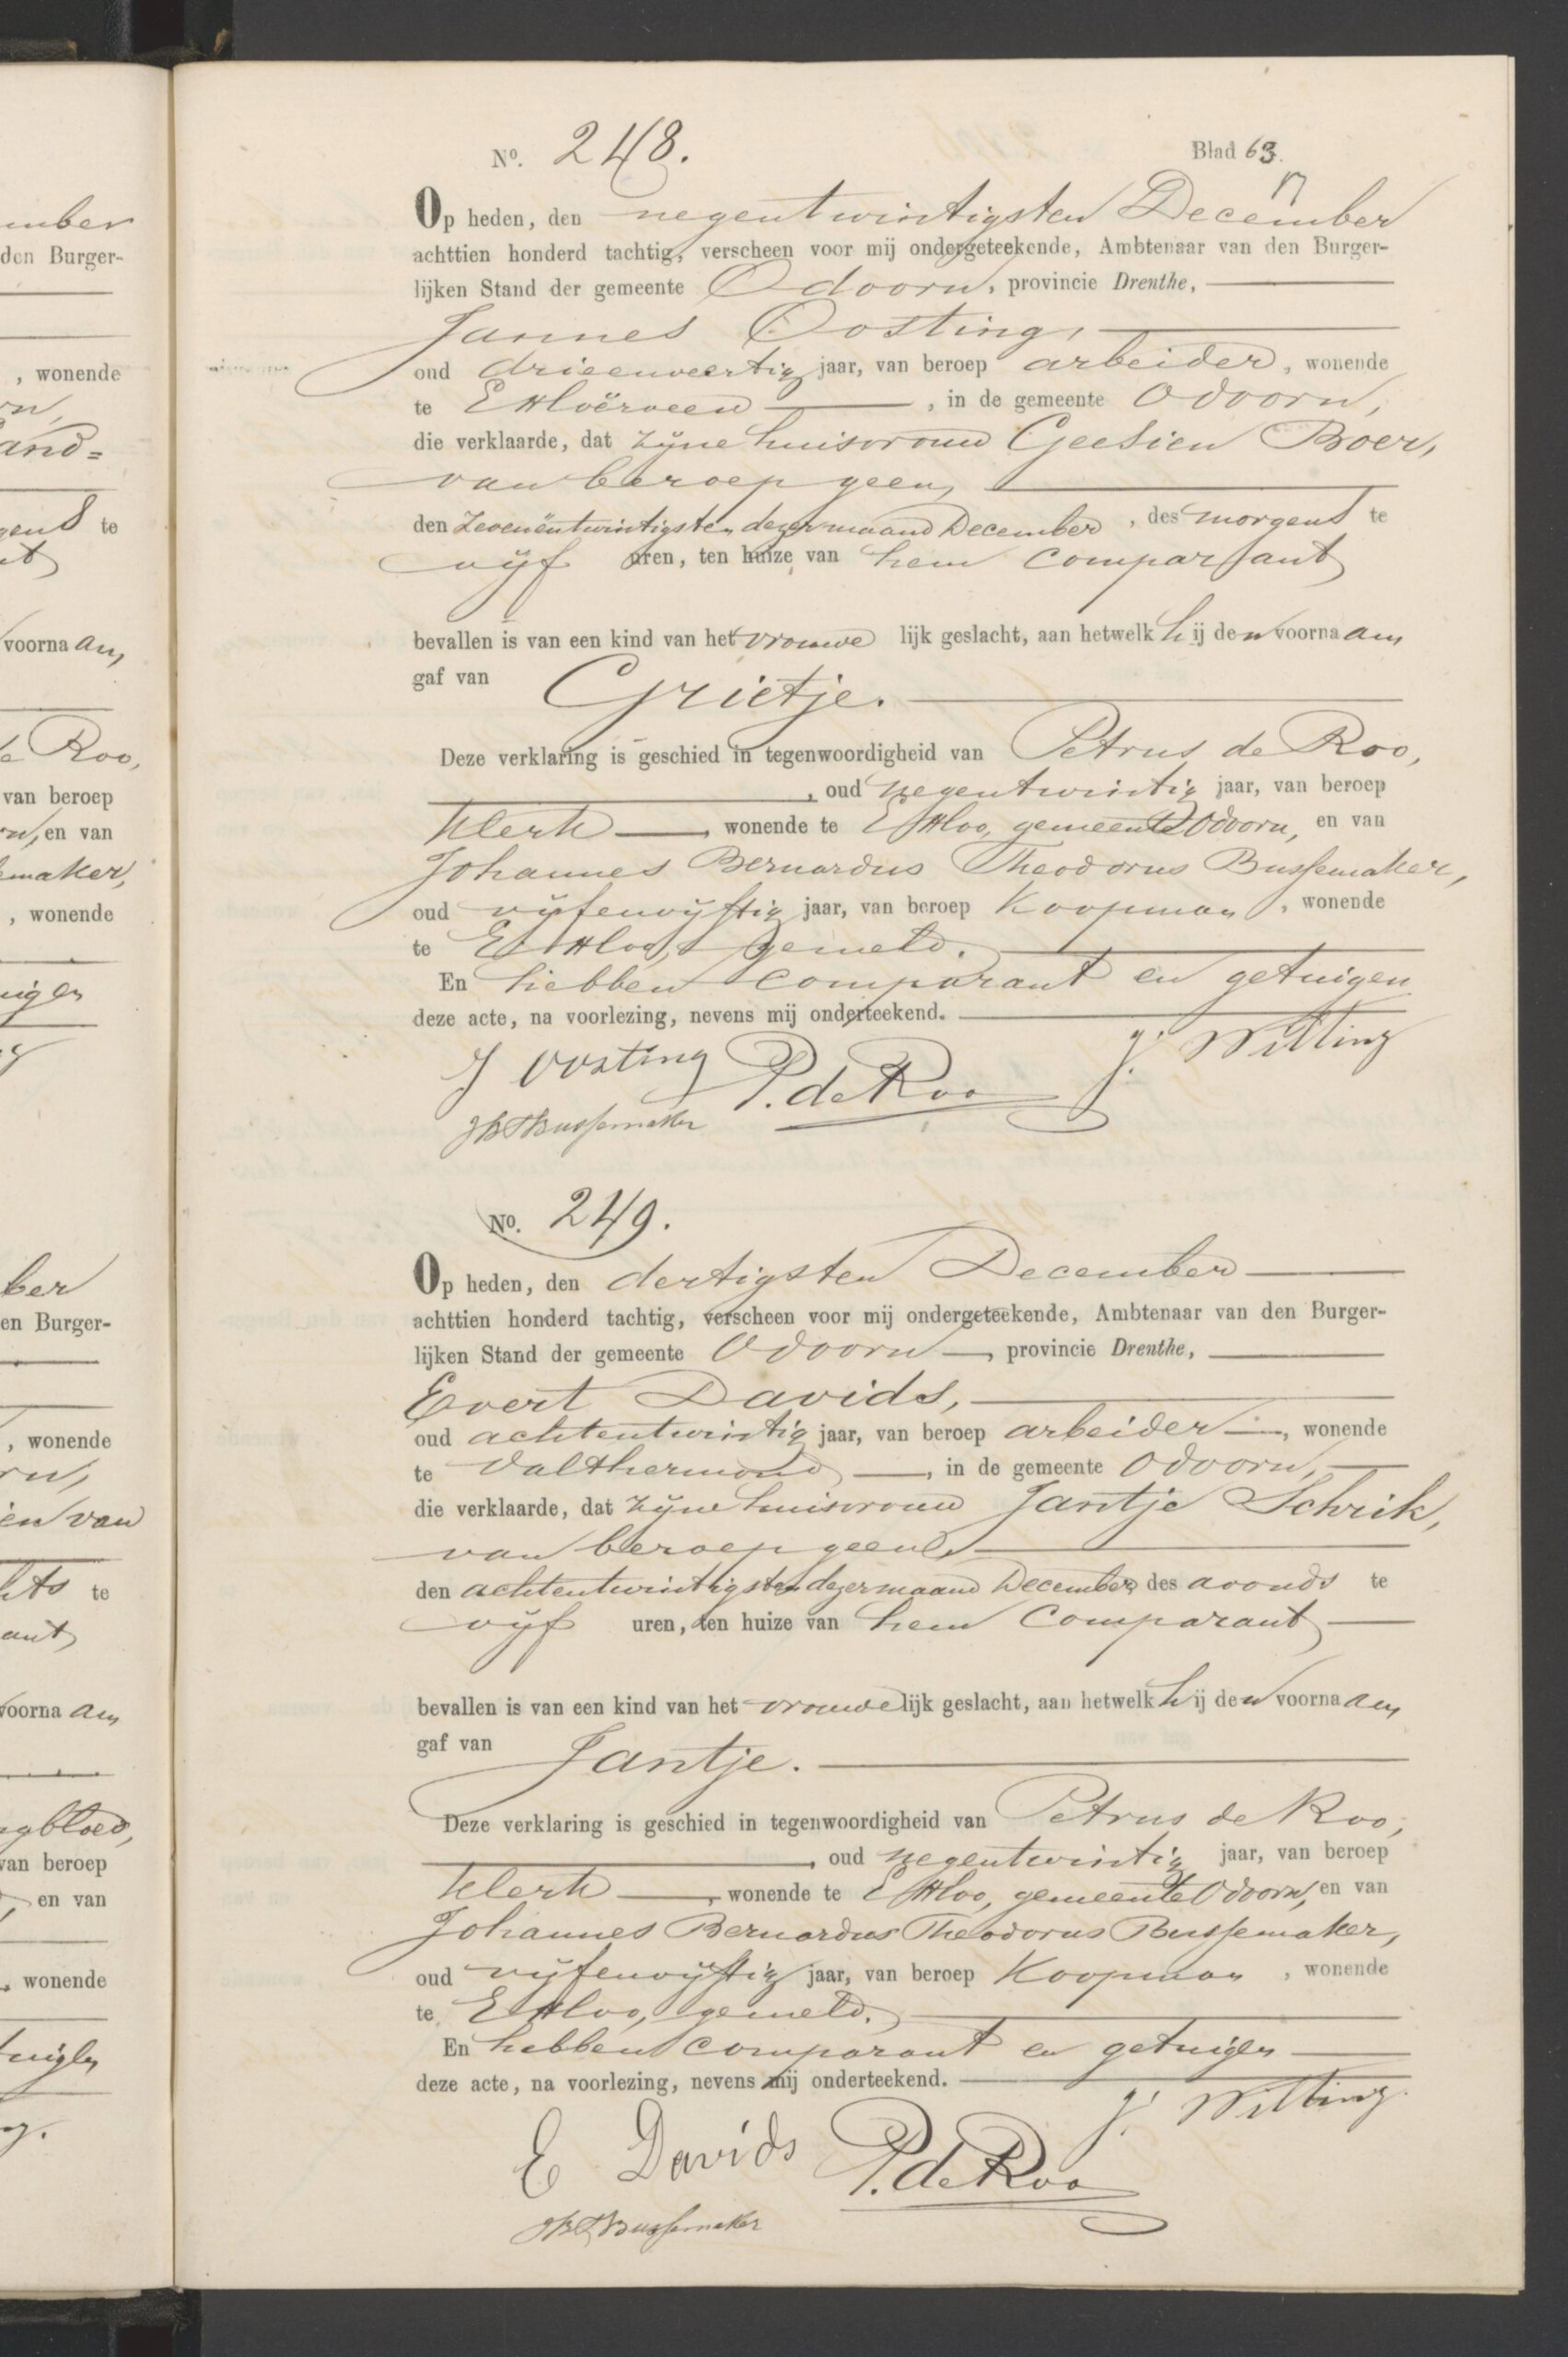 No. 248.
Blad 63.
Op heden, den negentwintigsten December
achttien honderd tachtig, verscheen voor mij ondergeteekende, Ambtenaar van den Burger-
lijken Stand der gemeente Odoorn, provincie Drenthe,
Jannes Oosting,
oud drieenveertig jaar, van beroep arbeider, wonende
te Exloërveen, in de gemeente Odoorn,
die verklaarde, dat zijne huisvrouw Geesien Boer,
van beroep geen,
den Zevenëntwintigsten dezer maand December, des morgens te
vijf uren, ten huize van hem comparant
bevallen is van een kind van het vrouwelijk geslacht, aan hetwelk hij den voornaam
gaf van Grietje.
Deze verklaring is geschied in tegenwoordigheid van Petrus de Roo,
, oud negentwintig jaar, van beroep
klerk, wonende te Exloo, gemeente Odoorn, en van
Johannes Bernardus Theodorus Bussemaker,
oud vijfenvijftig jaar, van beroep Koopman, wonende
te Exloo, gemeld.
En hebben comparant en getuigen
deze acte, na voorlezing, nevens mij onderteekend.
J. Witting
J Oosting P. de Roo
JBTBussemaker
No. 249.
Op heden, den dertigsten December
achttien honderd tachtig, verscheen voor mij ondergeteekende, Ambtenaar van den Burger-
lijken Stand der gemeente Odoorn, provincie Drenthe,
Evert Davids,
oud achtentwintig jaar, van beroep arbeider, wonende
te Valthermond, in de gemeente Odoorn,
die verklaarde, dat zijne huisvrouw Jantje Schrik,
van beroep geene,
den achtentwintigsten dezer maand December, des avonds te
vijf uren, ten huize van hem Comparant
bevallen is van een kind van het vrouwelijk geslacht, aan hetwelk hij den voornaam
gaf van Jantje.
Deze verklaring is geschied in tegenwoordigheid van Petrus de Roo,
, oud negentwintig jaar, van beroep
klerk, wonende te Exloo, gemeente Odoorn, en van
Johannes Bernardus Theodorus Bussemaker,
oud vijfenvijftig jaar, van beroep Koopman, wonende
te Exloo, gemeld.
En hebben comparant en getuigen
deze acte, na voorlezing, nevens mij onderteekend.
J. Witting.
E Davids P. de Roo
JBTBussemaker